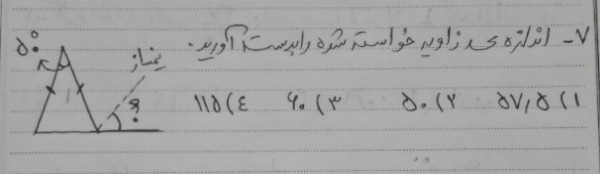 ۷- اندازه ی زاویه خواسته شده را بدست آورید.
۱) ۵۷٫۵ ۲) ۵۰ ۳) ۶۰ ۴) ۱۱۵
۵۰°
نیمساز
؟